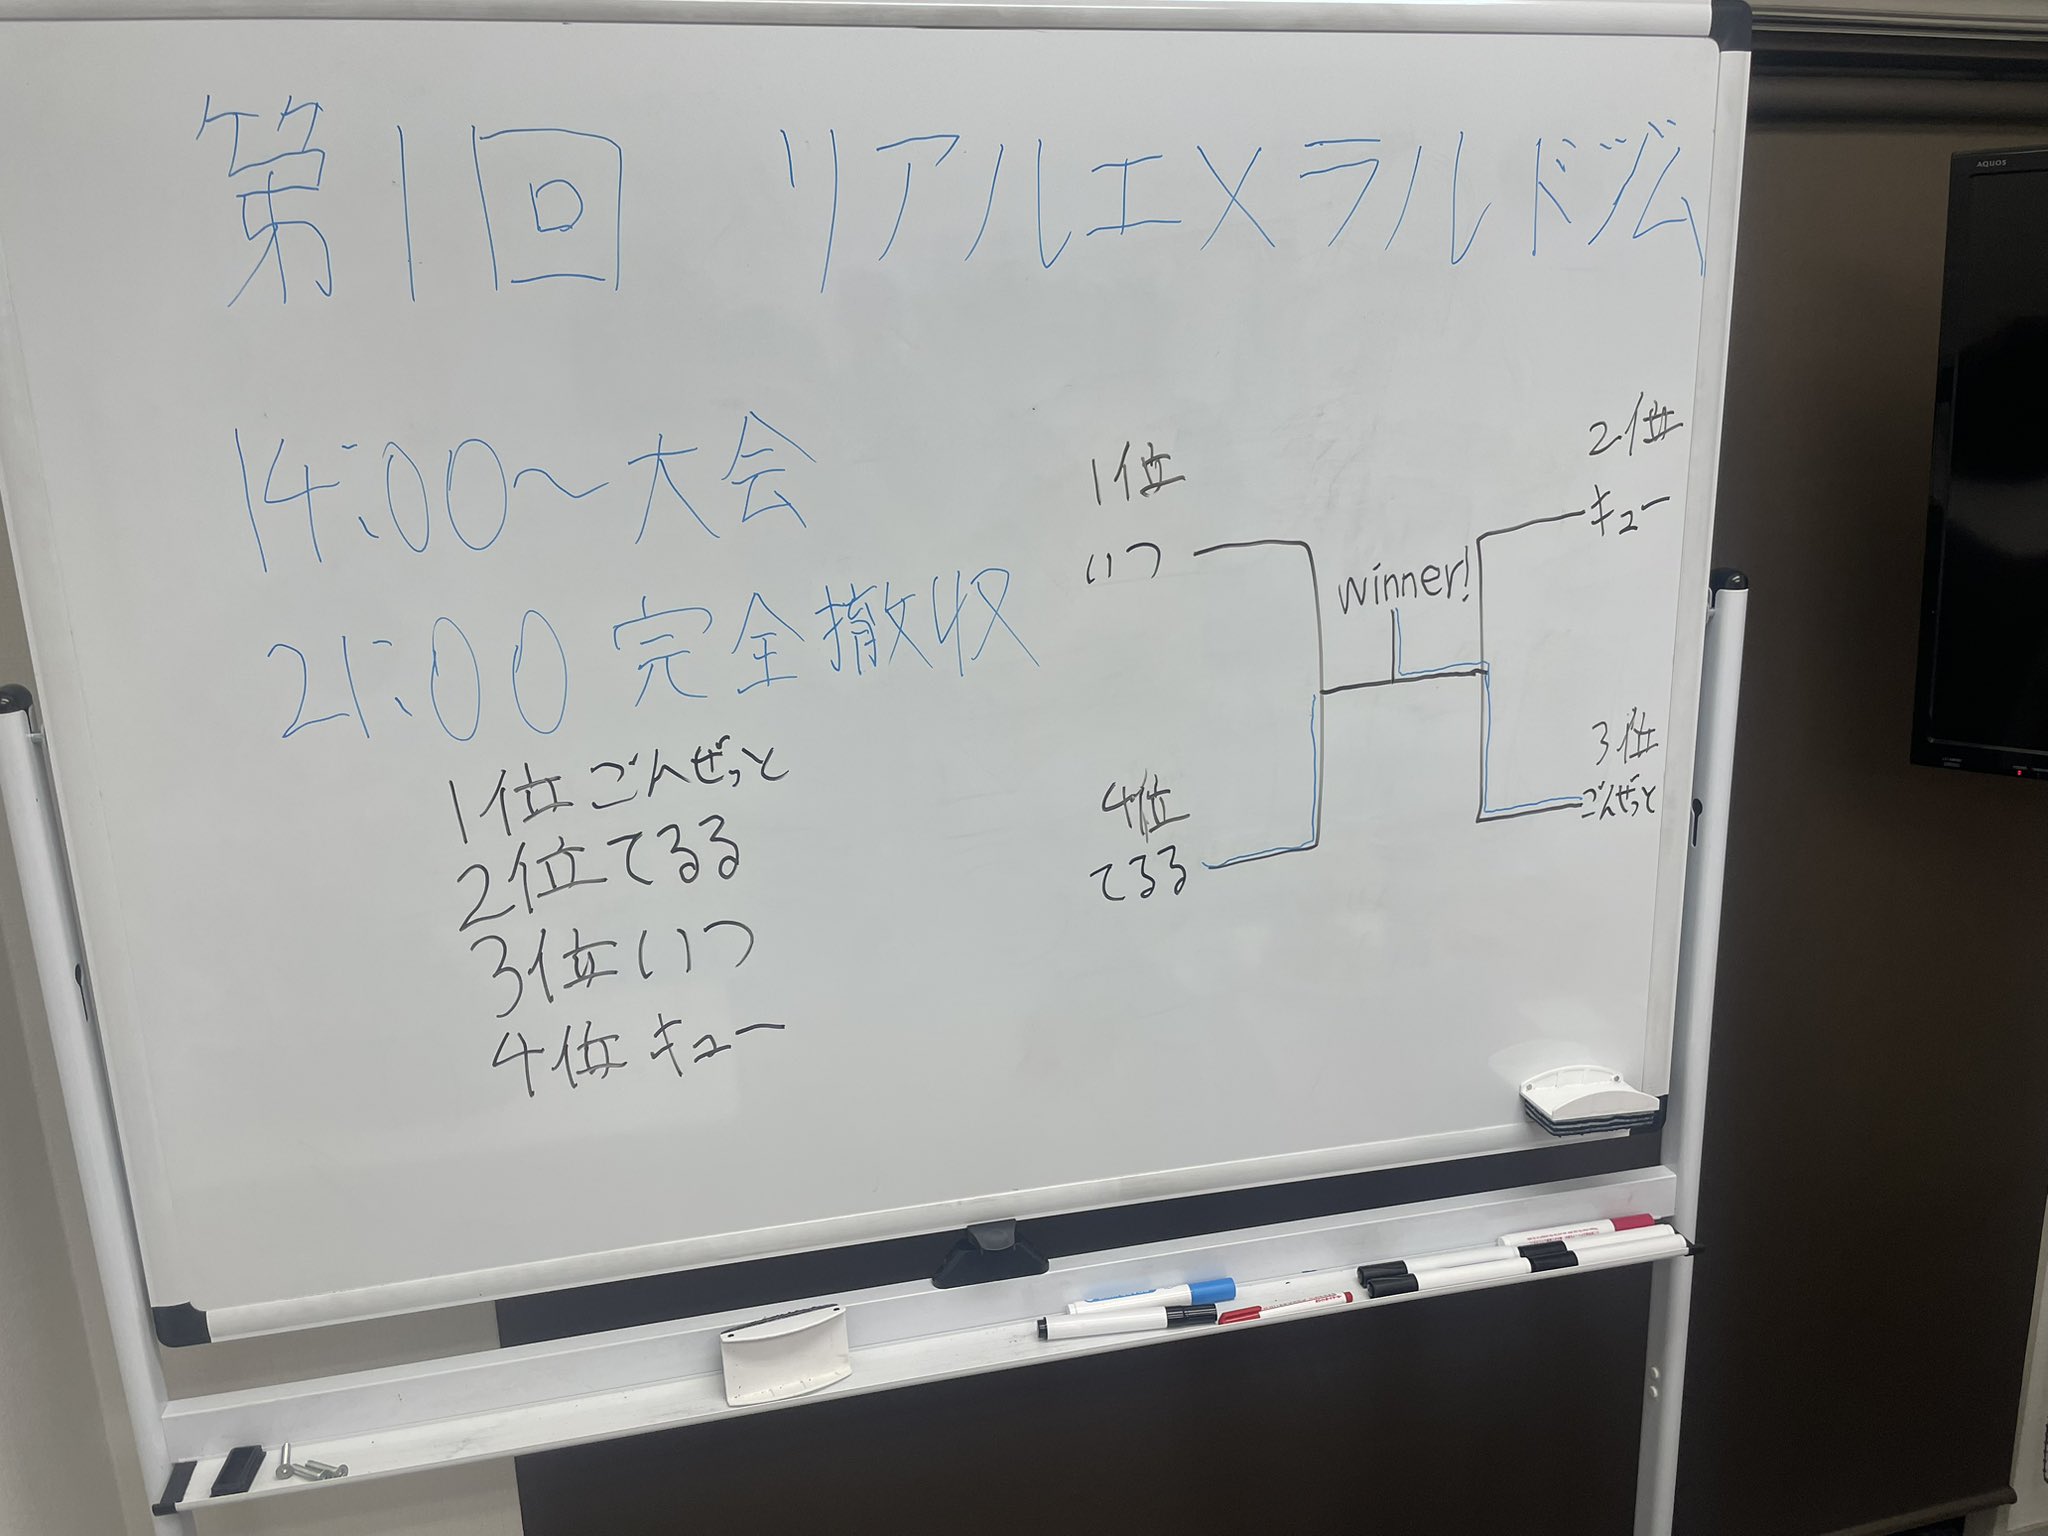 第1回 リアルエメラルドジム
14:00～大会
21:00 完全撤収
1位 ごんぜっと
2位 てるる
3位 いつ
4位 キュー
1位
いつ
4位
てるる
winner!
2位
キュー
3位
ごんぜっと
AQUOS